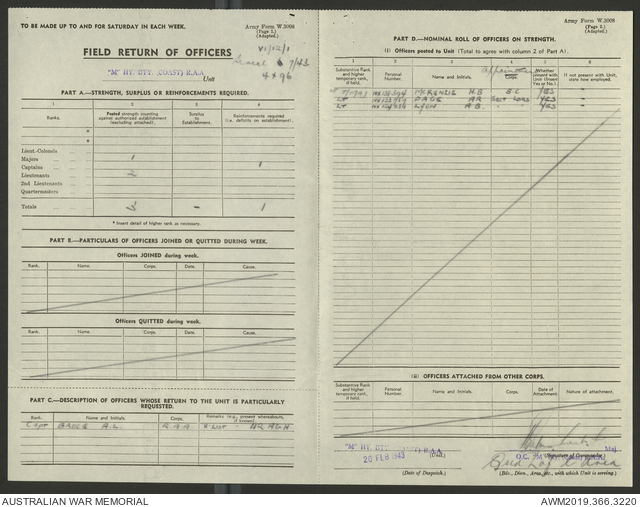 TO BE MADE UP TO AND FOR SATURDAY IN EACH WEEK.
Army Form W.3008
(Page 1.)
(Adapted.)
FIELD RETURN OF OFFICERS
VI/12/1
Serial 7/43
4 + 96
"M" HY. BTY. (COAST) R.A.A.
Unit
PART A.—STRENGTH, SURPLUS OR REINFORCEMENTS REQUIRED.
1 2 3 4
Ranks. Posted strength counting against authorized establishment (excluding attached). Surplus to Establishment. Reinforcements required (i.e. deficits on establishment).
*
*
Lieut.-Colonels
Majors 1
Captains 1
Lieutenants 2
2nd Lieutenants
Quartermasters
Totals 3 - 1
* Insert detail of higher rank as necessary.
PART B.—PARTICULARS OF OFFICERS JOINED OR QUITTED DURING WEEK.
Officers JOINED during week.
Rank. Name. Corps. Date. Cause.
Officers QUITTED during week.
Rank. Name. Corps. Date. Cause.
PART C.—DESCRIPTION OF OFFICERS WHOSE RETURN TO THE UNIT IS PARTICULARLY REQUESTED.
Rank. Name and Initials. Corps. Remarks (e.g., present whereabouts, if known).
Capt R.A.A HQ
Army Form W.3008
(Page 2.)
(Adapted.)
PART D.—NOMINAL ROLL OF OFFICERS ON STRENGTH.
(i) Officers posted to Unit (Total to agree with column 2 of Part A).
1 2 3 4 5 6
Substantive Rank and higher temporary rank, if held. Personal Number. Name and Initials. Appointm Corps. Whether present with Unit (Insert Yes or No.) If not present with Unit, state how employed.
McKENZIE H.B B.C YES "
LT PAGE A.R Sect Ldrs YES "
LT LYON A.B. " YES "
(ii) OFFICERS ATTACHED FROM OTHER CORPS.
Substantive Rank and higher temporary rank, if held. Personal Number. Name and Initials. Corps. Date of Attachment. Nature of attachment.
"M" HY. BTY. (COAST) R.A.A. (Unit).
20 FEB 1943
Maj.
O.C.
(Date of Despatch).
(Bde., Divn., Area, etc., with which Unit is serving.)
AUSTRALIAN WAR MEMORIAL
AWM2019.366.3220